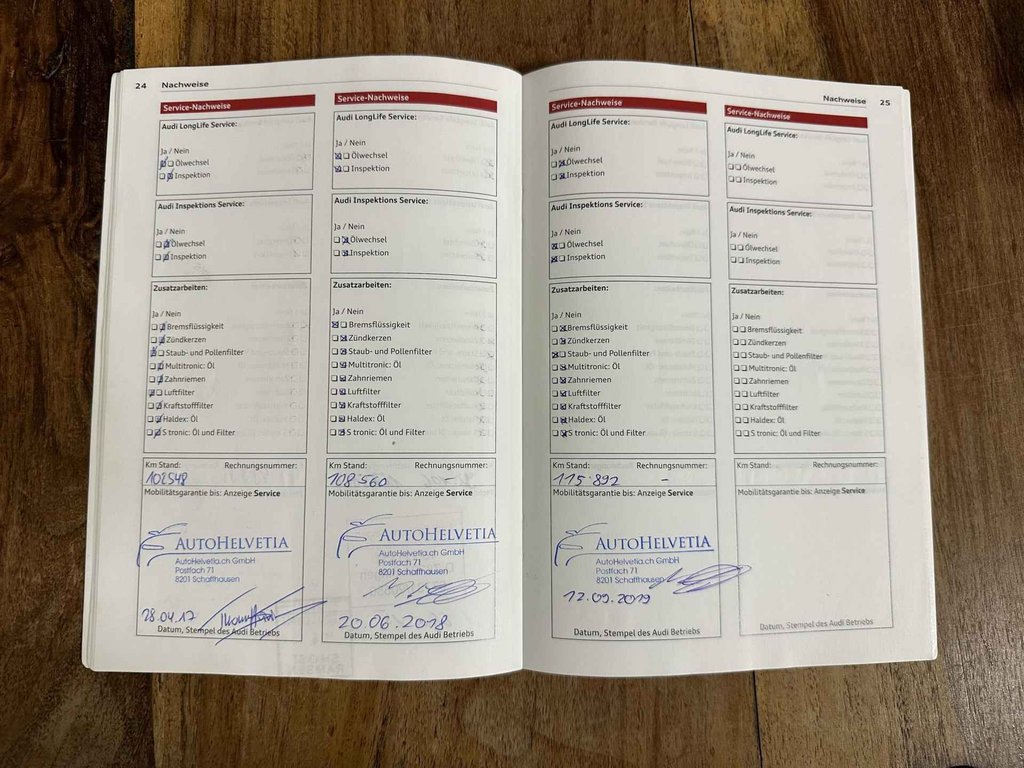 24 Nachweise
Service-Nachweise
Audi LongLife Service:
Ja / Nein
Ölwechsel
Inspektion
Audi Inspektions Service:
Ja / Nein
Ölwechsel
Inspektion
Zusatzarbeiten:
Ja / Nein
Bremsflüssigkeit
Zündkerzen
Staub- und Pollenfilter
Multitronic: Öl
Zahnriemen
Luftfilter
Kraftstofffilter
Haldex: Öl
S tronic: Öl und Filter
Km Stand: Rechnungsnummer:
102548
Mobilitätsgarantie bis: Anzeige Service
AUTOHELVETIA
AutoHelvetia.ch GmbH
Postfach 71
8201 Schaffhausen
28.04.17
Datum, Stempel des Audi Betriebs
Service-Nachweise
Audi LongLife Service:
Ja / Nein
Ölwechsel
Inspektion
Audi Inspektions Service:
Ja / Nein
Ölwechsel
Inspektion
Zusatzarbeiten:
Ja / Nein
Bremsflüssigkeit
Zündkerzen
Staub- und Pollenfilter
Multitronic: Öl
Zahnriemen
Luftfilter
Kraftstofffilter
Haldex: Öl
S tronic: Öl und Filter
Km Stand: Rechnungsnummer:
108 560 -
Mobilitätsgarantie bis: Anzeige Service
AUTOHELVETIA
AutoHelvetia.ch GmbH
Postfach 71
8201 Schaffhausen
20.06.2018
Datum, Stempel des Audi Betriebs
Nachweise 25
Service-Nachweise
Audi LongLife Service:
Ja / Nein
Ölwechsel
Inspektion
Audi Inspektions Service:
Ja / Nein
Ölwechsel
Inspektion
Zusatzarbeiten:
Ja / Nein
Bremsflüssigkeit
Zündkerzen
Staub- und Pollenfilter
Multitronic: Öl
Zahnriemen
Luftfilter
Kraftstofffilter
Haldex: Öl
S tronic: Öl und Filter
Km Stand: Rechnungsnummer:
115 892 -
Mobilitätsgarantie bis: Anzeige Service
AUTOHELVETIA
AutoHelvetia.ch GmbH
Postfach 71
8201 Schaffhausen
12.09.2019
Datum, Stempel des Audi Betriebs
Service-Nachweise
Audi LongLife Service:
Ja / Nein
Ölwechsel
Inspektion
Audi Inspektions Service:
Ja / Nein
Ölwechsel
Inspektion
Zusatzarbeiten:
Ja / Nein
Bremsflüssigkeit
Zündkerzen
Staub- und Pollenfilter
Multitronic: Öl
Zahnriemen
Luftfilter
Kraftstofffilter
Haldex: Öl
S tronic: Öl und Filter
Km Stand: Rechnungsnummer:
Mobilitätsgarantie bis: Anzeige Service
Datum, Stempel des Audi Betriebs